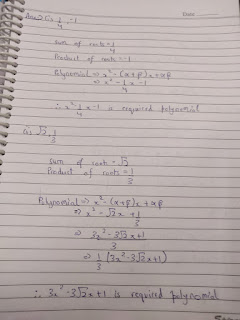 Date
Ans 2 (i) 1/4, -1
Sum of roots = 1/4
Product of roots = -1
Polynomial ⇒ x² - (α+β)x + αβ
⇒ x² - 1/4 x - 1
∴ x² - 1/4 x - 1 is required polynomial
(ii) √2, 1/3
Sum of roots = √2
Product of roots = 1/3
Polynomial ⇒ x² - (α+β)x + αβ
⇒ x² - √2x + 1/3
⇒ 3x² - 3√2x + 1 / 3
⇒ 1/3 (3x² - 3√2x + 1)
∴ 3x² - 3√2x + 1 is required polynomial